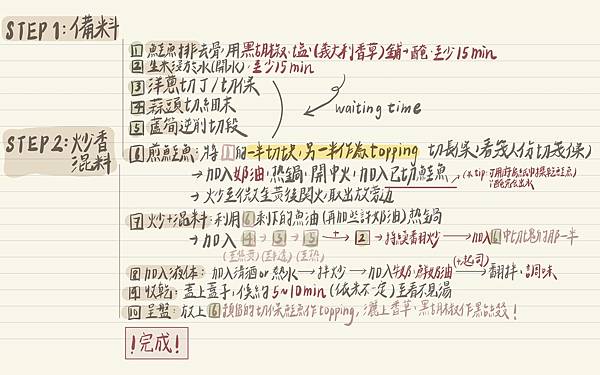 STEP 1: 備料
1 鮭魚排去骨,用黑胡椒、鹽(義大利香草)鋪+醃,至少15min
2 生米浸於水(開水),至少15min
3 洋蔥切丁/切條
4 蒜頭切細末
waiting time
5 蘆筍逆削切段
STEP 2: 炒香混料
6 煎鮭魚:將1的一半切塊,另一半作為topping 切長條(看幾人份切幾條)
→加入奶油,熱鍋,開中火,加入已切鮭魚
(※tip:可用廚房紙巾擦乾鮭魚
→炒至微金黃後關火,取出放旁邊
7 炒+混料:利用6剩下的魚油(再加些許奶油)熱鍋
→加入 4 → 3 → 5 + → 2 → 持續翻炒 → 加入6中切塊的那一半
8 加入液體:加入清酒or熱水→拌炒→加入牛奶、鮮奶油 (+起司) → 翻拌,調味
9 收乾:蓋上蓋子,僅約5~10min(依米不定)至看不見湯
10 呈盤:放上6預留的切條鮭魚作topping,灑上香草、黑胡椒作點綴!
!完成!